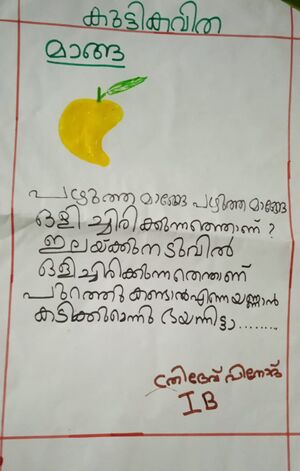 കുട്ടികവിത
മാങ്ങ
പഴുത്ത മാങ്ങേ പഴുത്ത മാങ്ങേ
ഒളി ച്ചിരിക്കുന്നതെന്താണ് ?
ഇലയ്ക്കുനടുവിൽ
ഒളിച്ചിരിക്കുന്നതെന്താണ്
പുറത്തു കണ്ടാൽഎന്നെയണ്ണാൻ
കടിക്കുമെന്നു ഭയന്നിട്ടാ.........
ത്രിദേവ് വിനോദ്
I B